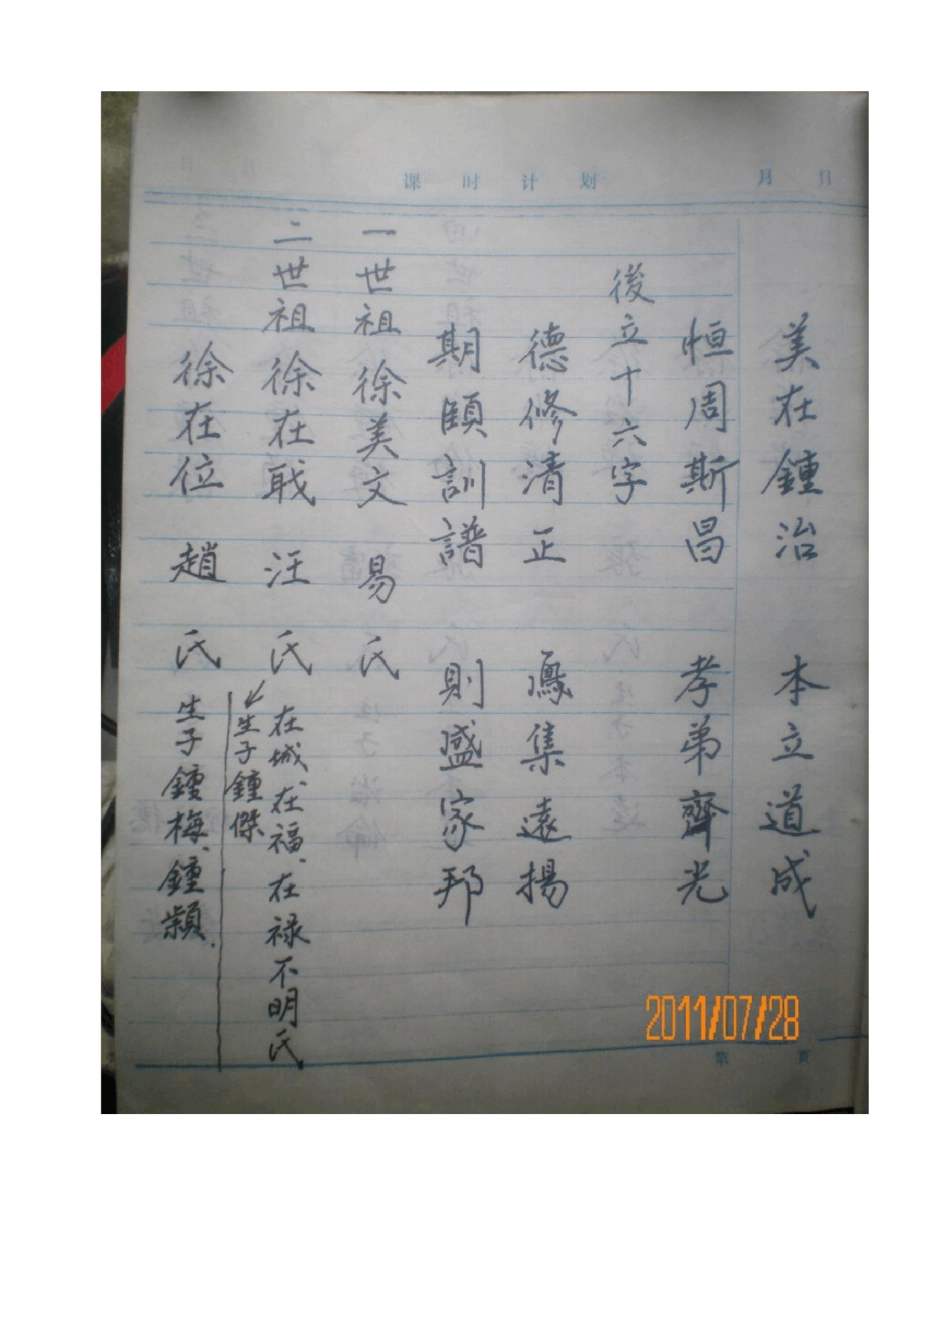 课时计划
月 日
美在鍾治 本立道成
恒周斯昌 孝弟齊光
後立十六字
德修清正 鳳集遠揚
期頤訓譜 則盛家邦
一世祖徐美文 易氏
二世祖徐在戢 汪氏
在城、在福、在禄不明氏
生子鍾傑
徐在位 趙氏 生子鍾梅、鍾穎.
2011/07/28
第 页